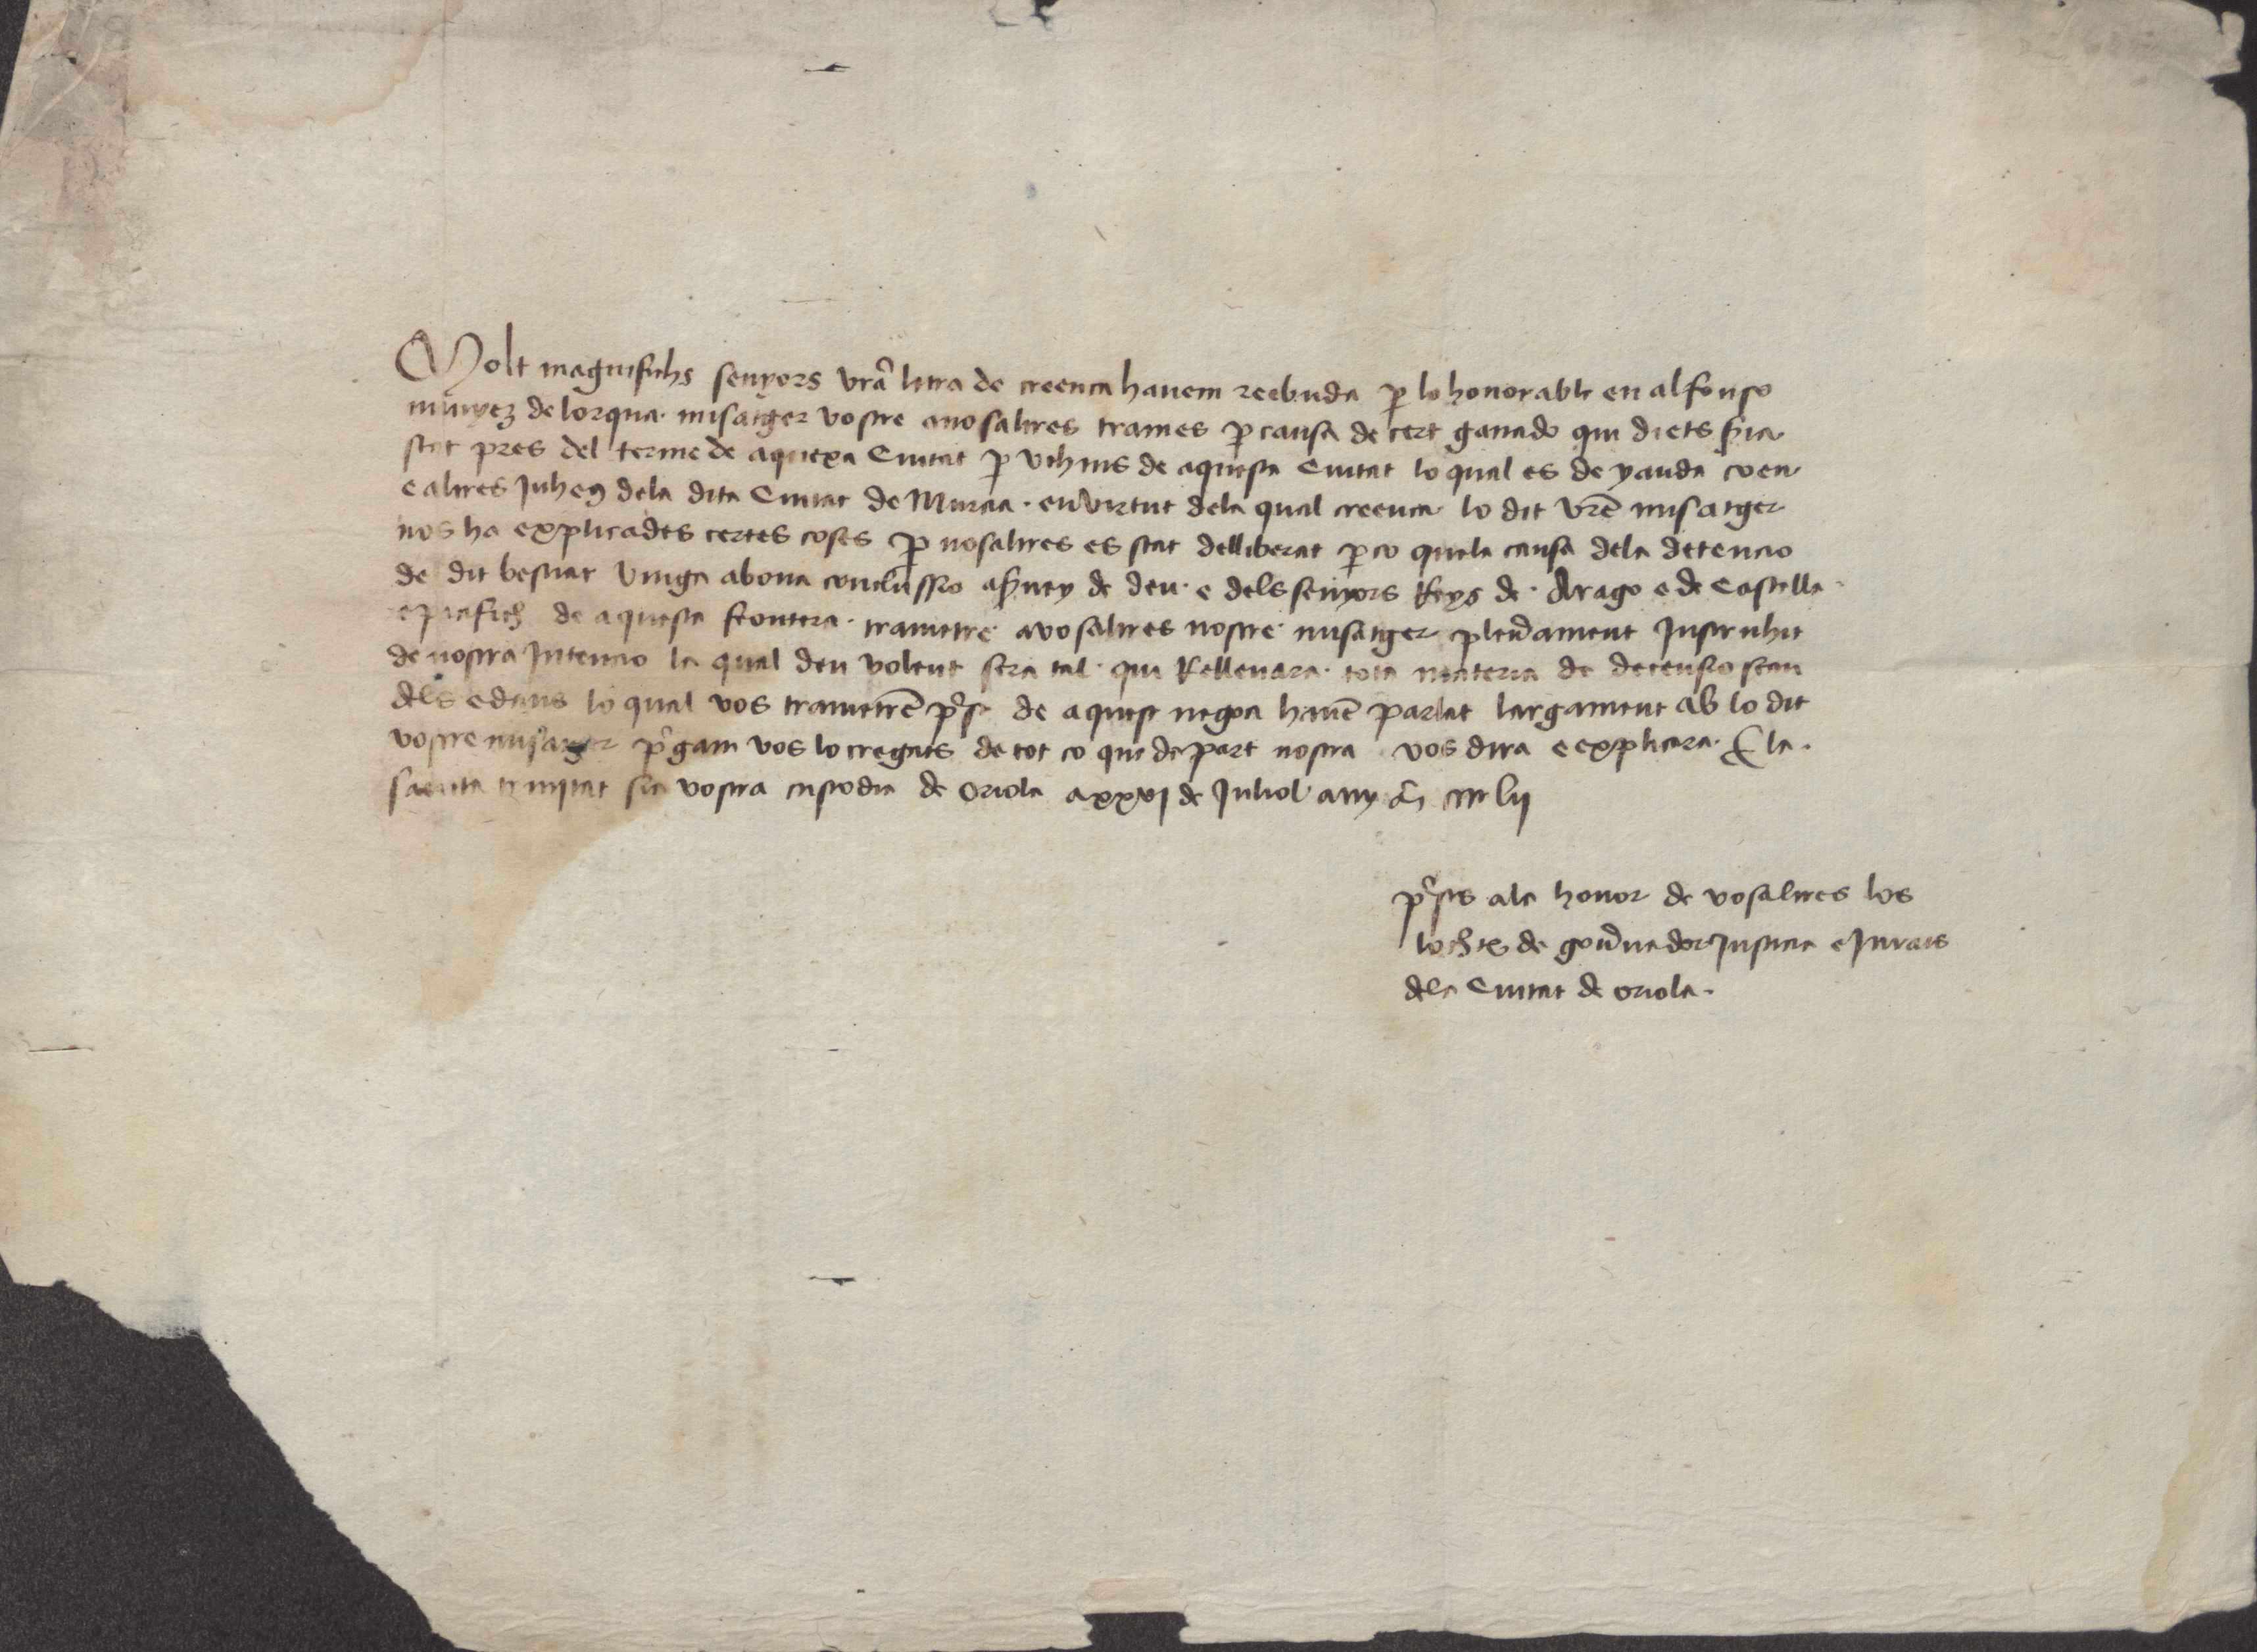 Molt magnifichs senyors vrã letra de creenca havem reebuda p lo honorable en alfonso
munyez de lorqua · misatger vostre anosaltres trames p causa de cert ganado qui diets sia
stat pres del terme de aquexa Ciutat p vehins de aquesta Ciutat lo qual es de yauda coen
e altres juheus dela dita Ciutat de Murcia · en virtut dela qual creenca lo dit vrẽ misatger
nos ha explicades certes coses p nosaltres es stat delliberat p co quela causa dela detencio
de dit bestiar vinga abona conclussio a ... de deu · e dels senyors Reys de · Arago e de Castella ·
e ... de aquesta frontera · trametre avosaltres nostre misatger plenament Instruhit
de nostra Intencio la qual deu volent sera tal · qui Rellevara · tota materia de ... scan
dels e dans lo qual vos trametrẽ pst de aquest negoci havẽ parlat largament ab lo dit
vostre misatger pgam vos lo cregats de tot co que de part nostra vos dira e explicara · E la ·
santa trinitat sia vostra custodia de Oriola a xxvj de Juliol any M cccc lij
psts ala honor de vosaltres los
lochts de gounador Justicia e Jurats
dela Ciutat de oriola ·